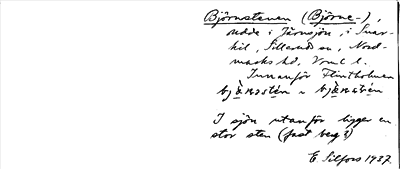 Björnstenen (Björne-),
udde i Järnsjön, i Svar-
kil, Sillerud sn, Nord-
marks hd, Vrml l.
Innanför Flintholmen
I sjön utanför ligger en
stor sten (fast berg?)
E. Silfors 1937